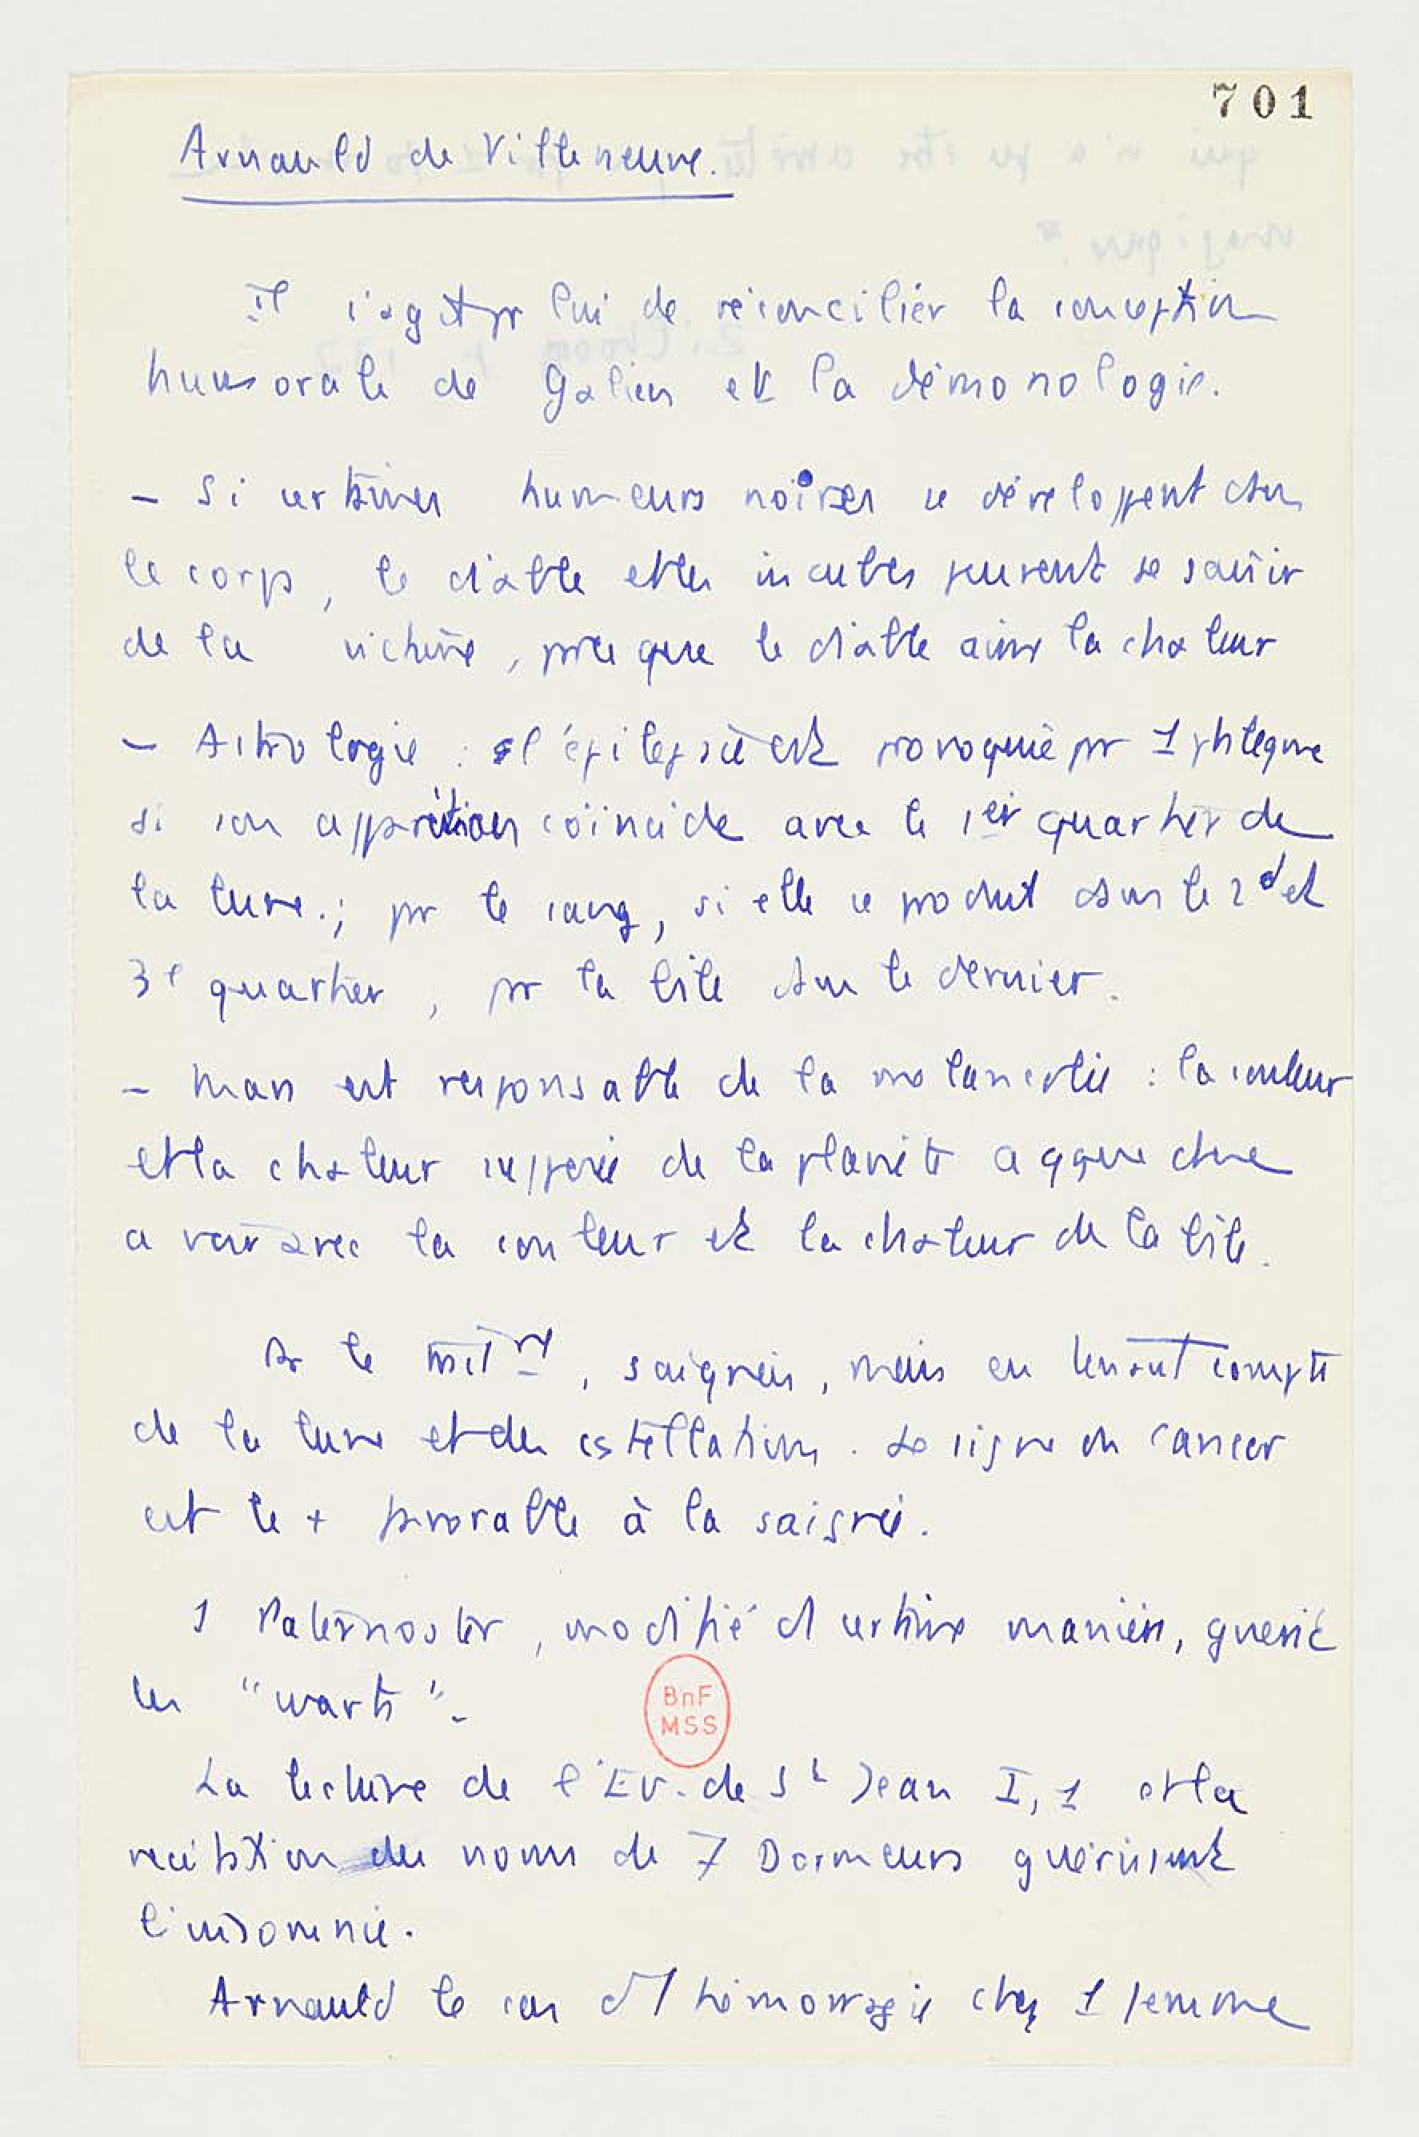 701
Arnauld de Villeneuve.
Il s'agit pr lui de réconcilier la conception
humorale de Galien et la démonologie.
- Si certaines humeurs noires se développent dans
le corps, le diable et les incubes peuvent se saisir
de la victime, parce que le diable aime la chaleur
- Astrologie : l'épilepsie est provoquée par 1 phlegme
si son apparition coïncide avec le 1er quartier de
la lune ; par le sang, si elle se produit dans le 2d et
3e quartier, par la bile dans le dernier.
- Mars est responsable de la mélancolie : la couleur
et la chaleur supposée de la planète a qque chose
à voir avec la couleur et la chaleur de la bile.
Pr le trait nt, saignées, mais en tenant compte
de la lune et des cstellations. Le signe du Cancer
est le + favorable à la saignée.
1 Paternoster, modifié d certaine manière, guérit
les "warts".
La lecture de l'Ev. de St Jean I, 1 et la
récitation des noms de 7 Dormeurs guérissent
l'insomnie.
Arnauld le cas d'1 hémorragie chez 1 femme
BnF
MSS